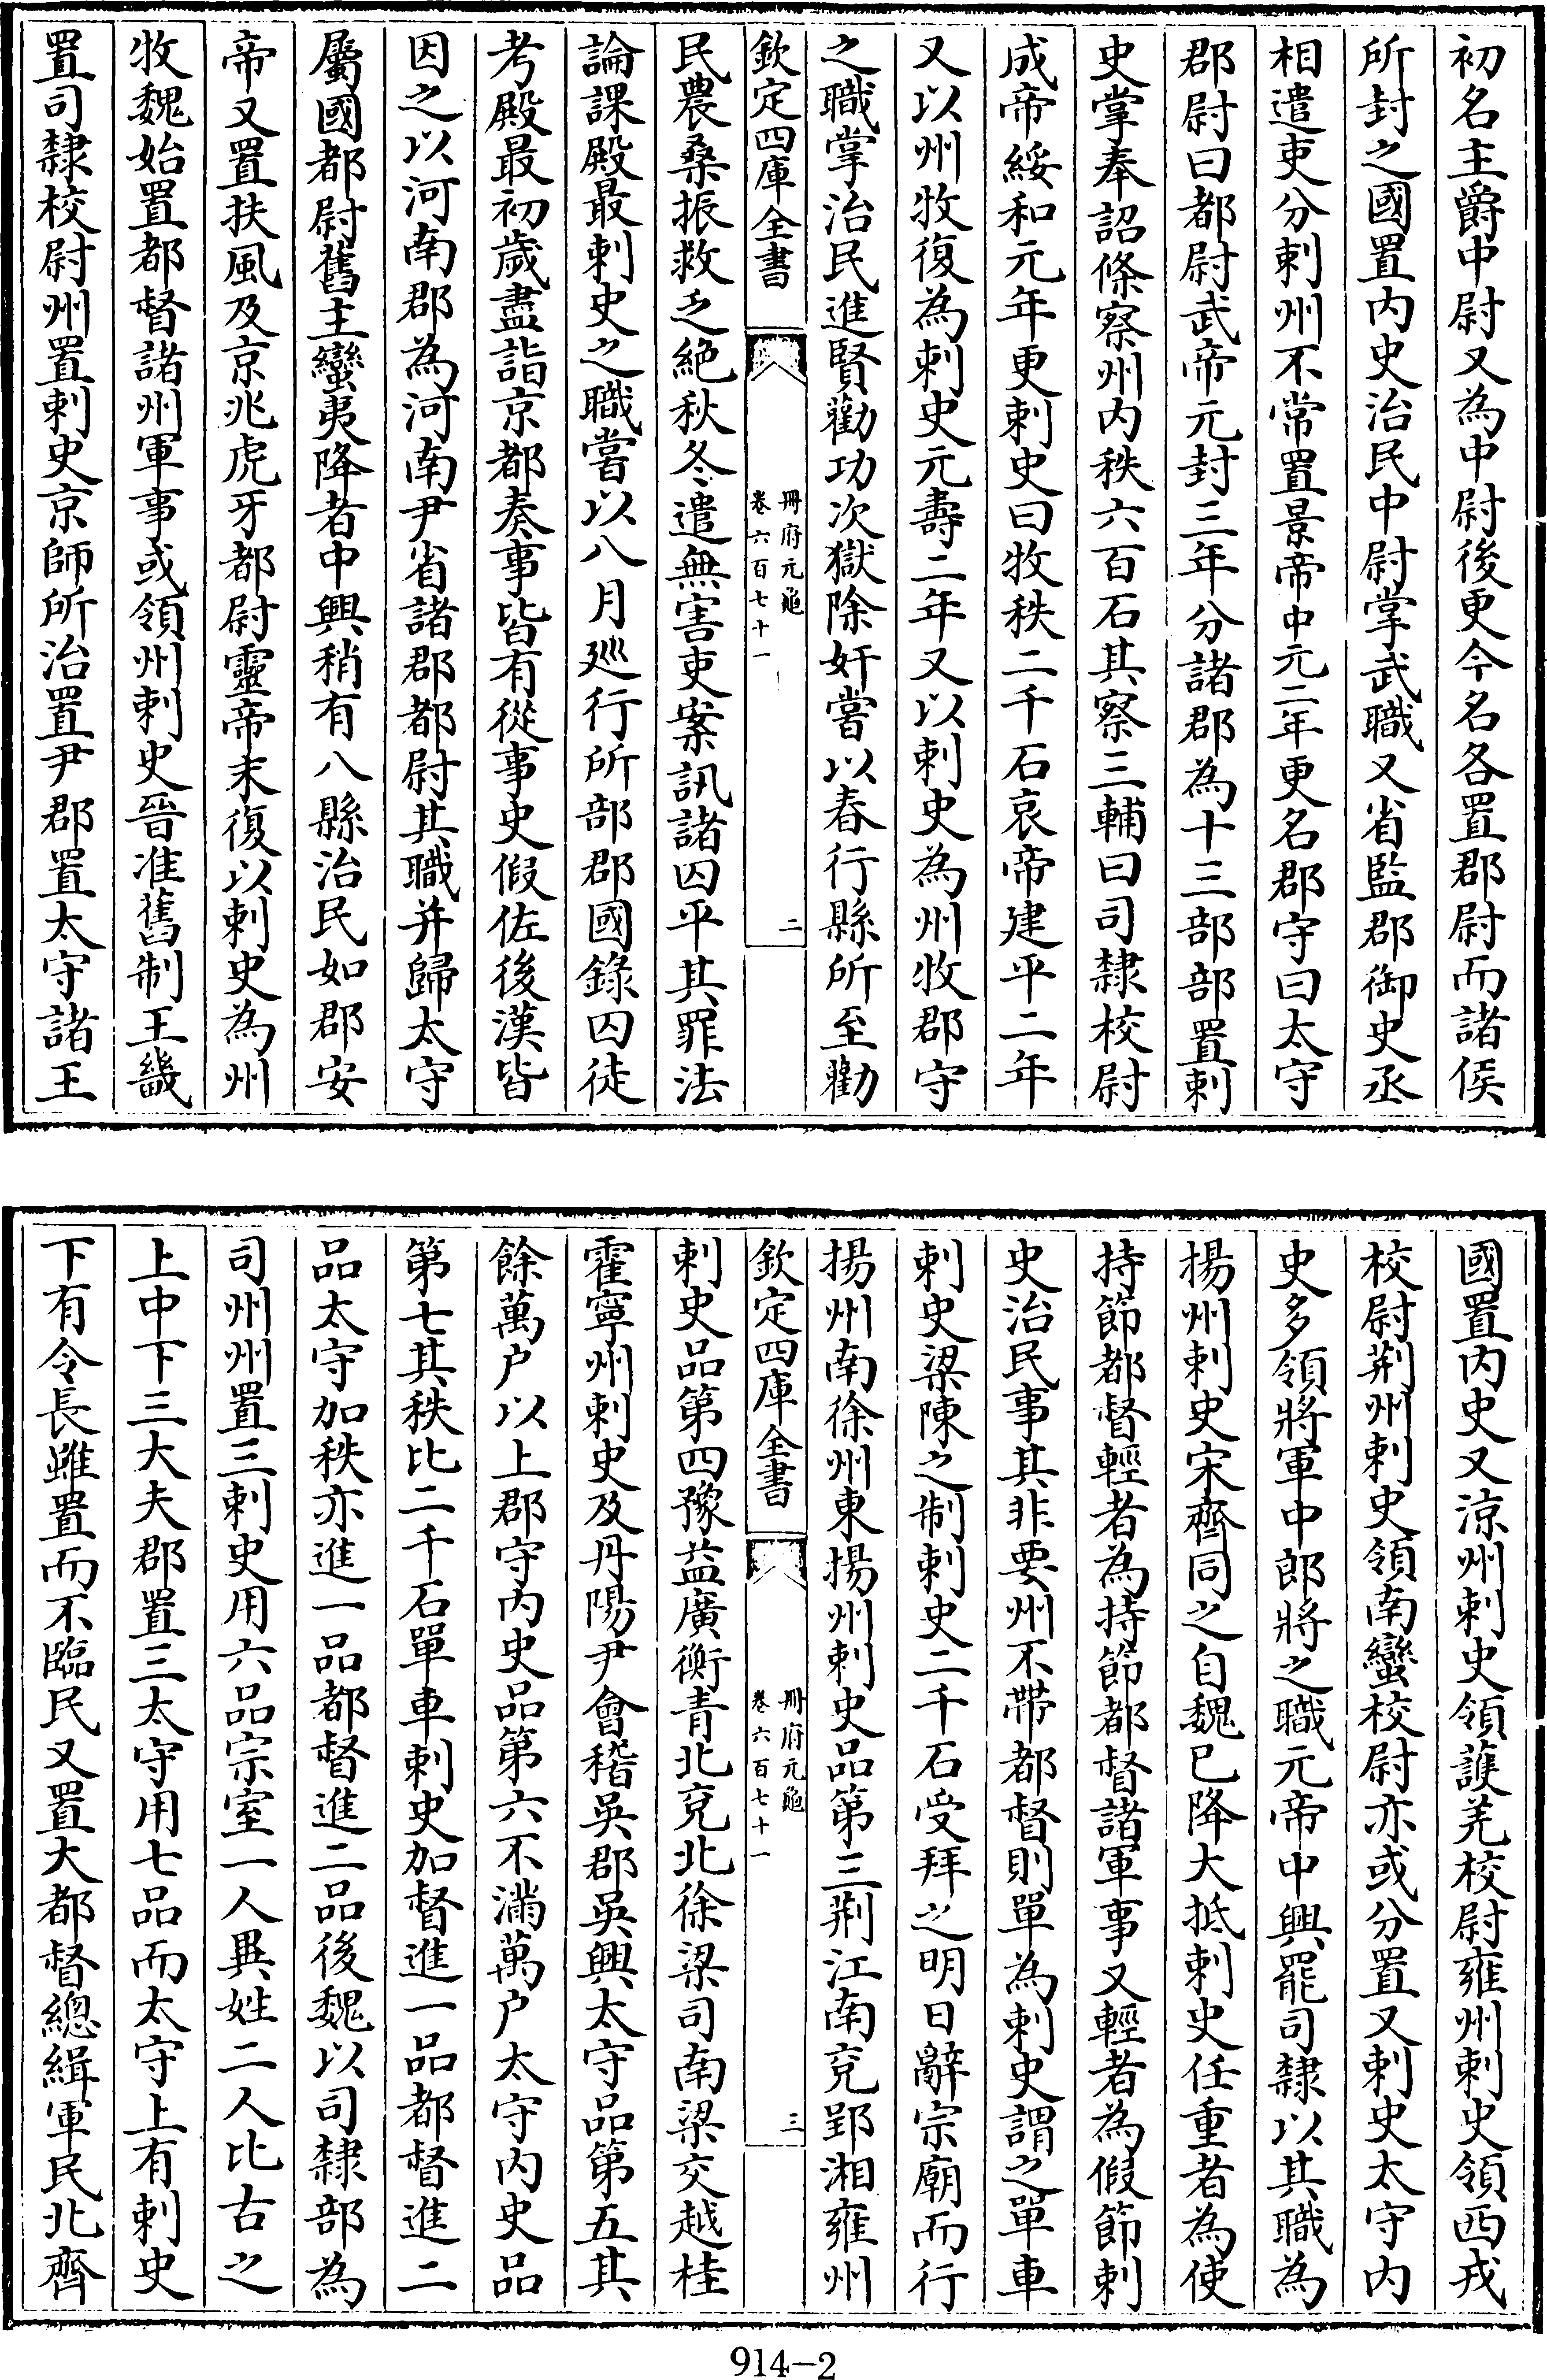 初名主爵中尉又為中尉後更今名各置郡尉而諸侯
所封之國置内史治民中尉掌武職又省監郡御史丞
相遣吏分刺州不常置景帝中元二年更名郡守曰太守
郡尉曰都尉武帝元封三年分諸郡為十三部部置刺
史掌奉詔條察州内秩六百石其察三輔曰司隸校尉
成帝綏和元年更刺史曰牧秩二千石哀帝建平二年
又以州牧復為刺史元壽二年又以刺史為州牧郡守
之職掌治民進賢勸功次獄除奸嘗以春行縣所至勸
欽定四庫全書
冊府元龜
卷六百七十一
二
民農桑振救乏絶秋冬遣無害吏案訊諸囚平其罪法
論課殿最刺史之職嘗以八月廵行所部郡國錄囚徒
考殿最初歲盡詣京都奏事皆有從事史假佐後漢皆
因之以河南郡為河南尹省諸郡都尉其職并歸太守
屬國都尉舊主蠻夷降者中興稍有八縣治民如郡安
帝又置扶風及京兆虎牙都尉靈帝末復以刺史為州
牧魏始置都督諸州軍事或領州刺史晉准舊制王畿
置司隸校尉州置刺史京師所治置尹郡置太守諸王
國置内史又涼州刺史領護羌校尉雍州刺史領西戎
校尉荆州刺史領南蠻校尉亦或分置又刺史太守内
史多領將軍中郎將之職元帝中興罷司隸以其職為
揚州刺史宋齊同之自魏已降大抵刺史任重者為使
持節都督輕者為持節都督諸軍事又輕者為假節刺
史治民事其非要州不帶都督則單為刺史謂之單車
刺史梁陳之制刺史二千石受拜之明日辭宗廟而行
揚州南徐州東揚州刺史品第三荆江南兖郢湘雍州
欽定四庫全書
冊府元龜
卷六百七十一
三
刺史品第四豫益廣衡青北兖北徐梁司南梁交越桂
霍寧州刺史及丹陽尹會稽吳郡吳興太守品第五其
餘萬户以上郡守内史品第六不滿萬户太守内史品
第七其秩比二千石單車刺史加督進一品都督進二
品太守加秩亦進一品都督進二品後魏以司隸部為
司州州置三刺史用六品宗室一人異姓二人比古之
上中下三大夫郡置三太守用七品而太守上有刺史
下有令長雖置而不臨民又置大都督總緝軍民北齊
914-2